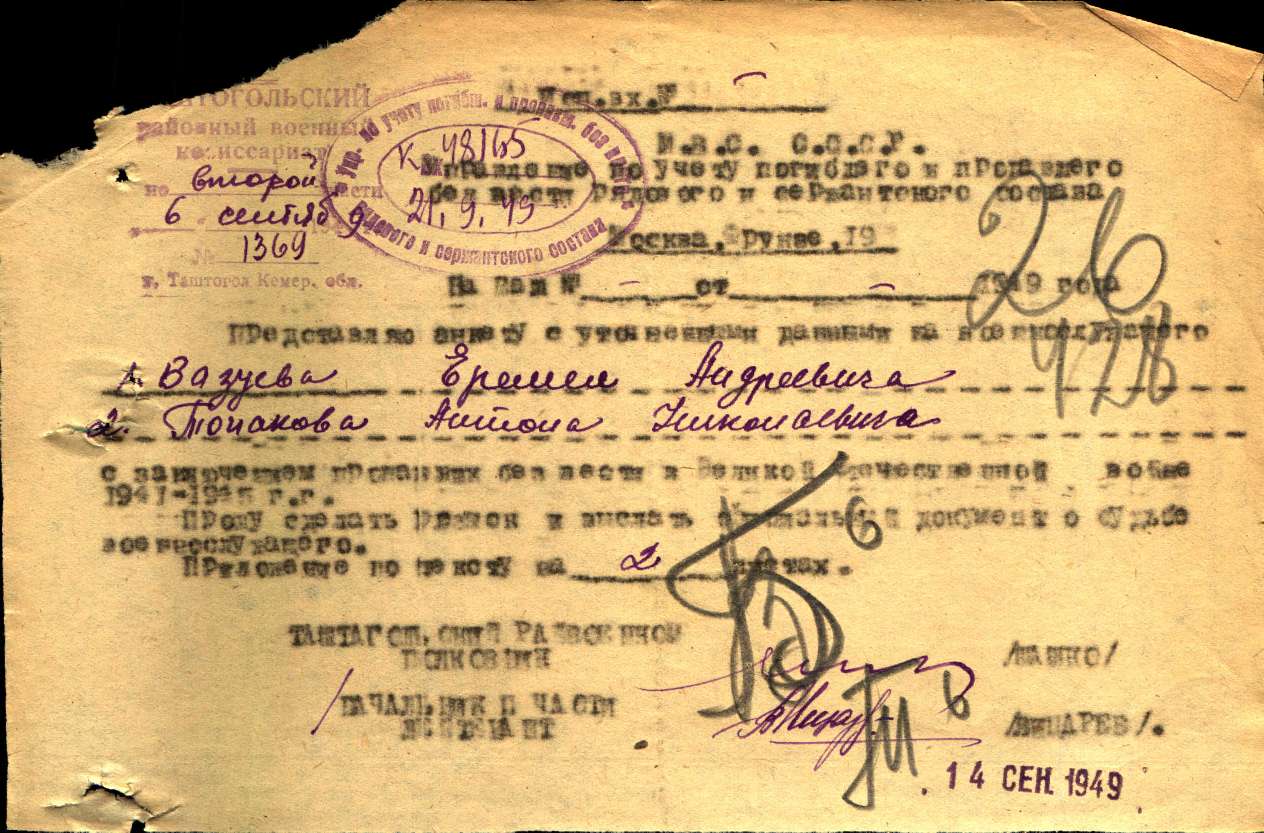 ТАШТОГОЛЬСКИЙ
районный военный
комиссариат
по второй части
6 сентяб 9
№ 1369
г. Таштогол Кемер. обл.
Упр. по учету погибш. и пропавш. без вести
рядового и сержантского состава
К 48165
21.9.49
вх.№
М.В.С. С.С.С.Р.
Управление по учету погибшего и пропавшего
без вести рядового и сержантского состава
Москва, Фрунзе, 19
На Ваш № - от - 1949 года
26
428
Представляю анкету с уточненными данными на военнослужащего
1. Вазуева Еремея Андреевича
2. Топакова Антона Николаевича
с заключением пропавших без вести в Великой Отечественной войне
1941-1945 г.г.
Прошу сделать розыск и выслать документ о судьбе
военнослужащего.
Приложение по тексту на 2 листах.
6
ТАШТАГОЛЬСКИЙ РАЙВОЕНКОМ
ПОЛКОВНИК
НАЧАЛЬНИК П ЧАСТИ
ЛЕЙТЕНАНТ
14 СЕН. 1949